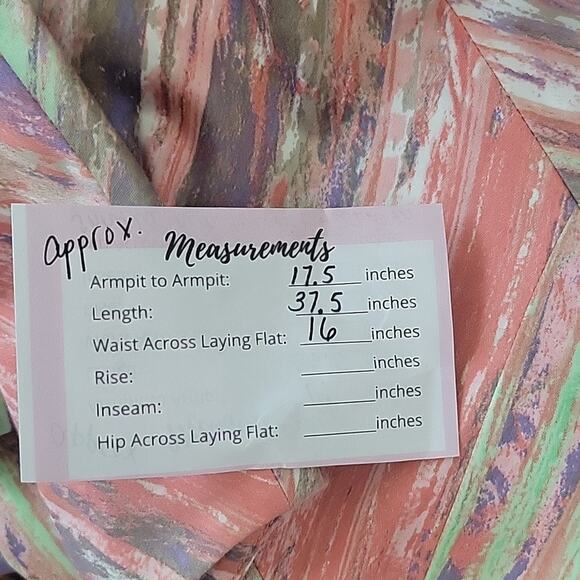 approx.
Measurements
Armpit to Armpit: 17.5 inches
Length: 37.5 inches
Waist Across Laying Flat: 16 inches
Rise: ______ inches
Inseam: ______ inches
Hip Across Laying Flat: ______ inches